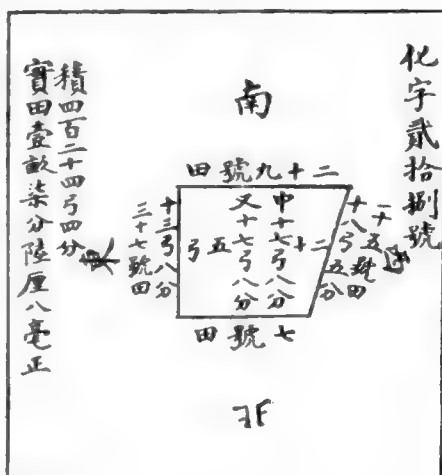 化字貳拾捌號
南
二十九號田
二十五號田
西
十八弓五分
中十七弓八分
又十七弓八分
二十五弓
十三弓八分
三十七號田
東
七號田
北
積四百二十四弓四分
實田壹畝柒分陸厘八毫正